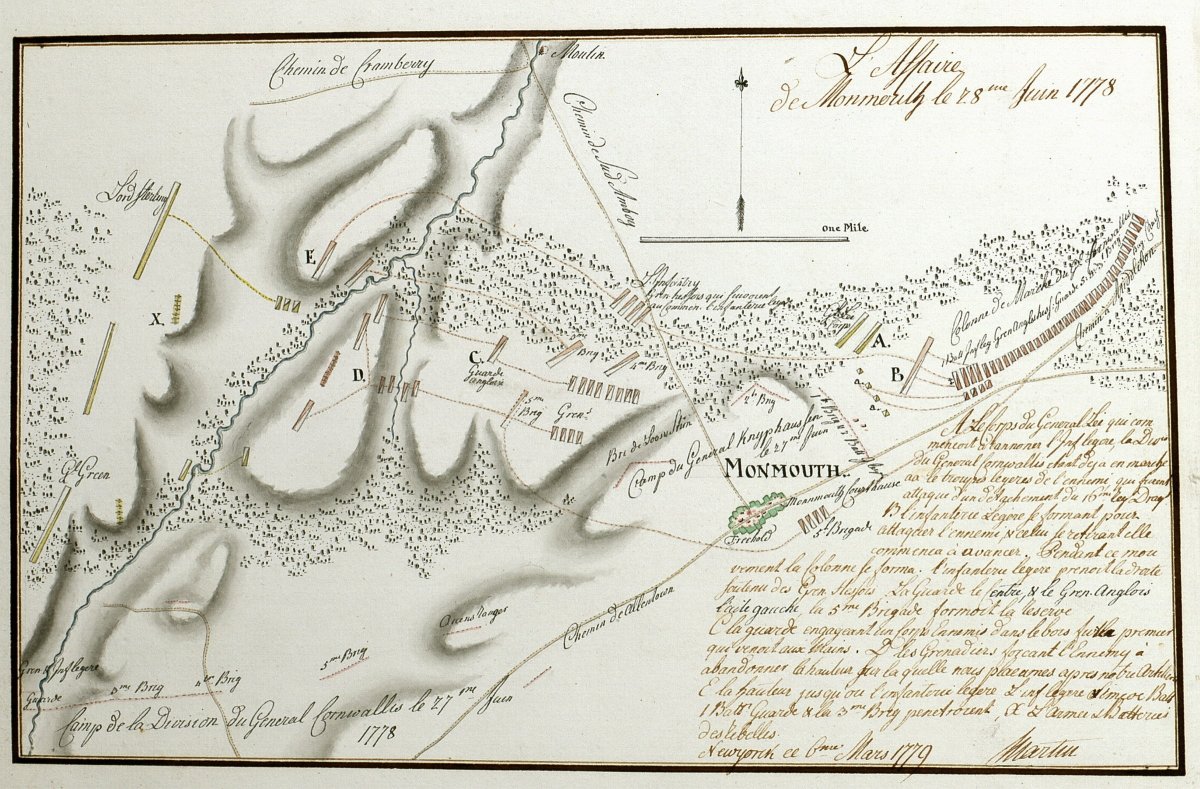 L'Affaire
de Monmouth le 28me Juin 1778
Chemin de Cramberry
Moulin.
Chemin de Sud Amboy
one Mile
Lord Sterling
X.
E.
D.
C.
Guarde
d'anglois
L'Infantery
Gren hessois qui
Brig
4me Brig
5me
Brig
5me
Brig
Gren.s
A.
B.
Colonne de Marche de
Chemin de Middletton
a.
a.
2de Brig
Camp du General Knyphausen
le 27me Juin
MONMOUTH.
Monmouth Courthause
Freehold
5me Brigade
Gl Green
Chemin de Allentown
5me Brig
Gren & Inf legere
Guarde
3me Brig
4me Brig
Camp de la Division du General Cornwallis le 27me Juin
1778
A. Le Corps du General Lée qui com
mencoit à cannoner l'Inf legere, la Divis
du General Cornwallis etant deja en marche
aa le troupes legeres de l'ennemi qui furent
attaqué d'un detachement du 16me leg Drag
B l'infanterie Legere se formant pour
attaquer l'ennemi, & celui se retirant elle
commenca à avancer. Pendant ce mou
vement la Colonne se forma. l'infanterie legere prenoit la droite
soutenu des Gren Hessois. La Guarde le Centre, & le Gren Anglois
l'aile gauche la 5me Brigade formoit la reserve
C la guarde engageant un Corps Ennemis dans le bois
qui venoit aux mains. D. les Grenadiers forceant l'Ennemy à
abandonner la hauteur sur la quelle nous placames apres notre Artillerie
E la hauteur jusqu'ou l'infanterie legere
1 Batt. Guarde & la 3me Brig penetroient, X L'armee & Batteries
des rebelles.
Newyorck ce 6me Mars 1779
Martin